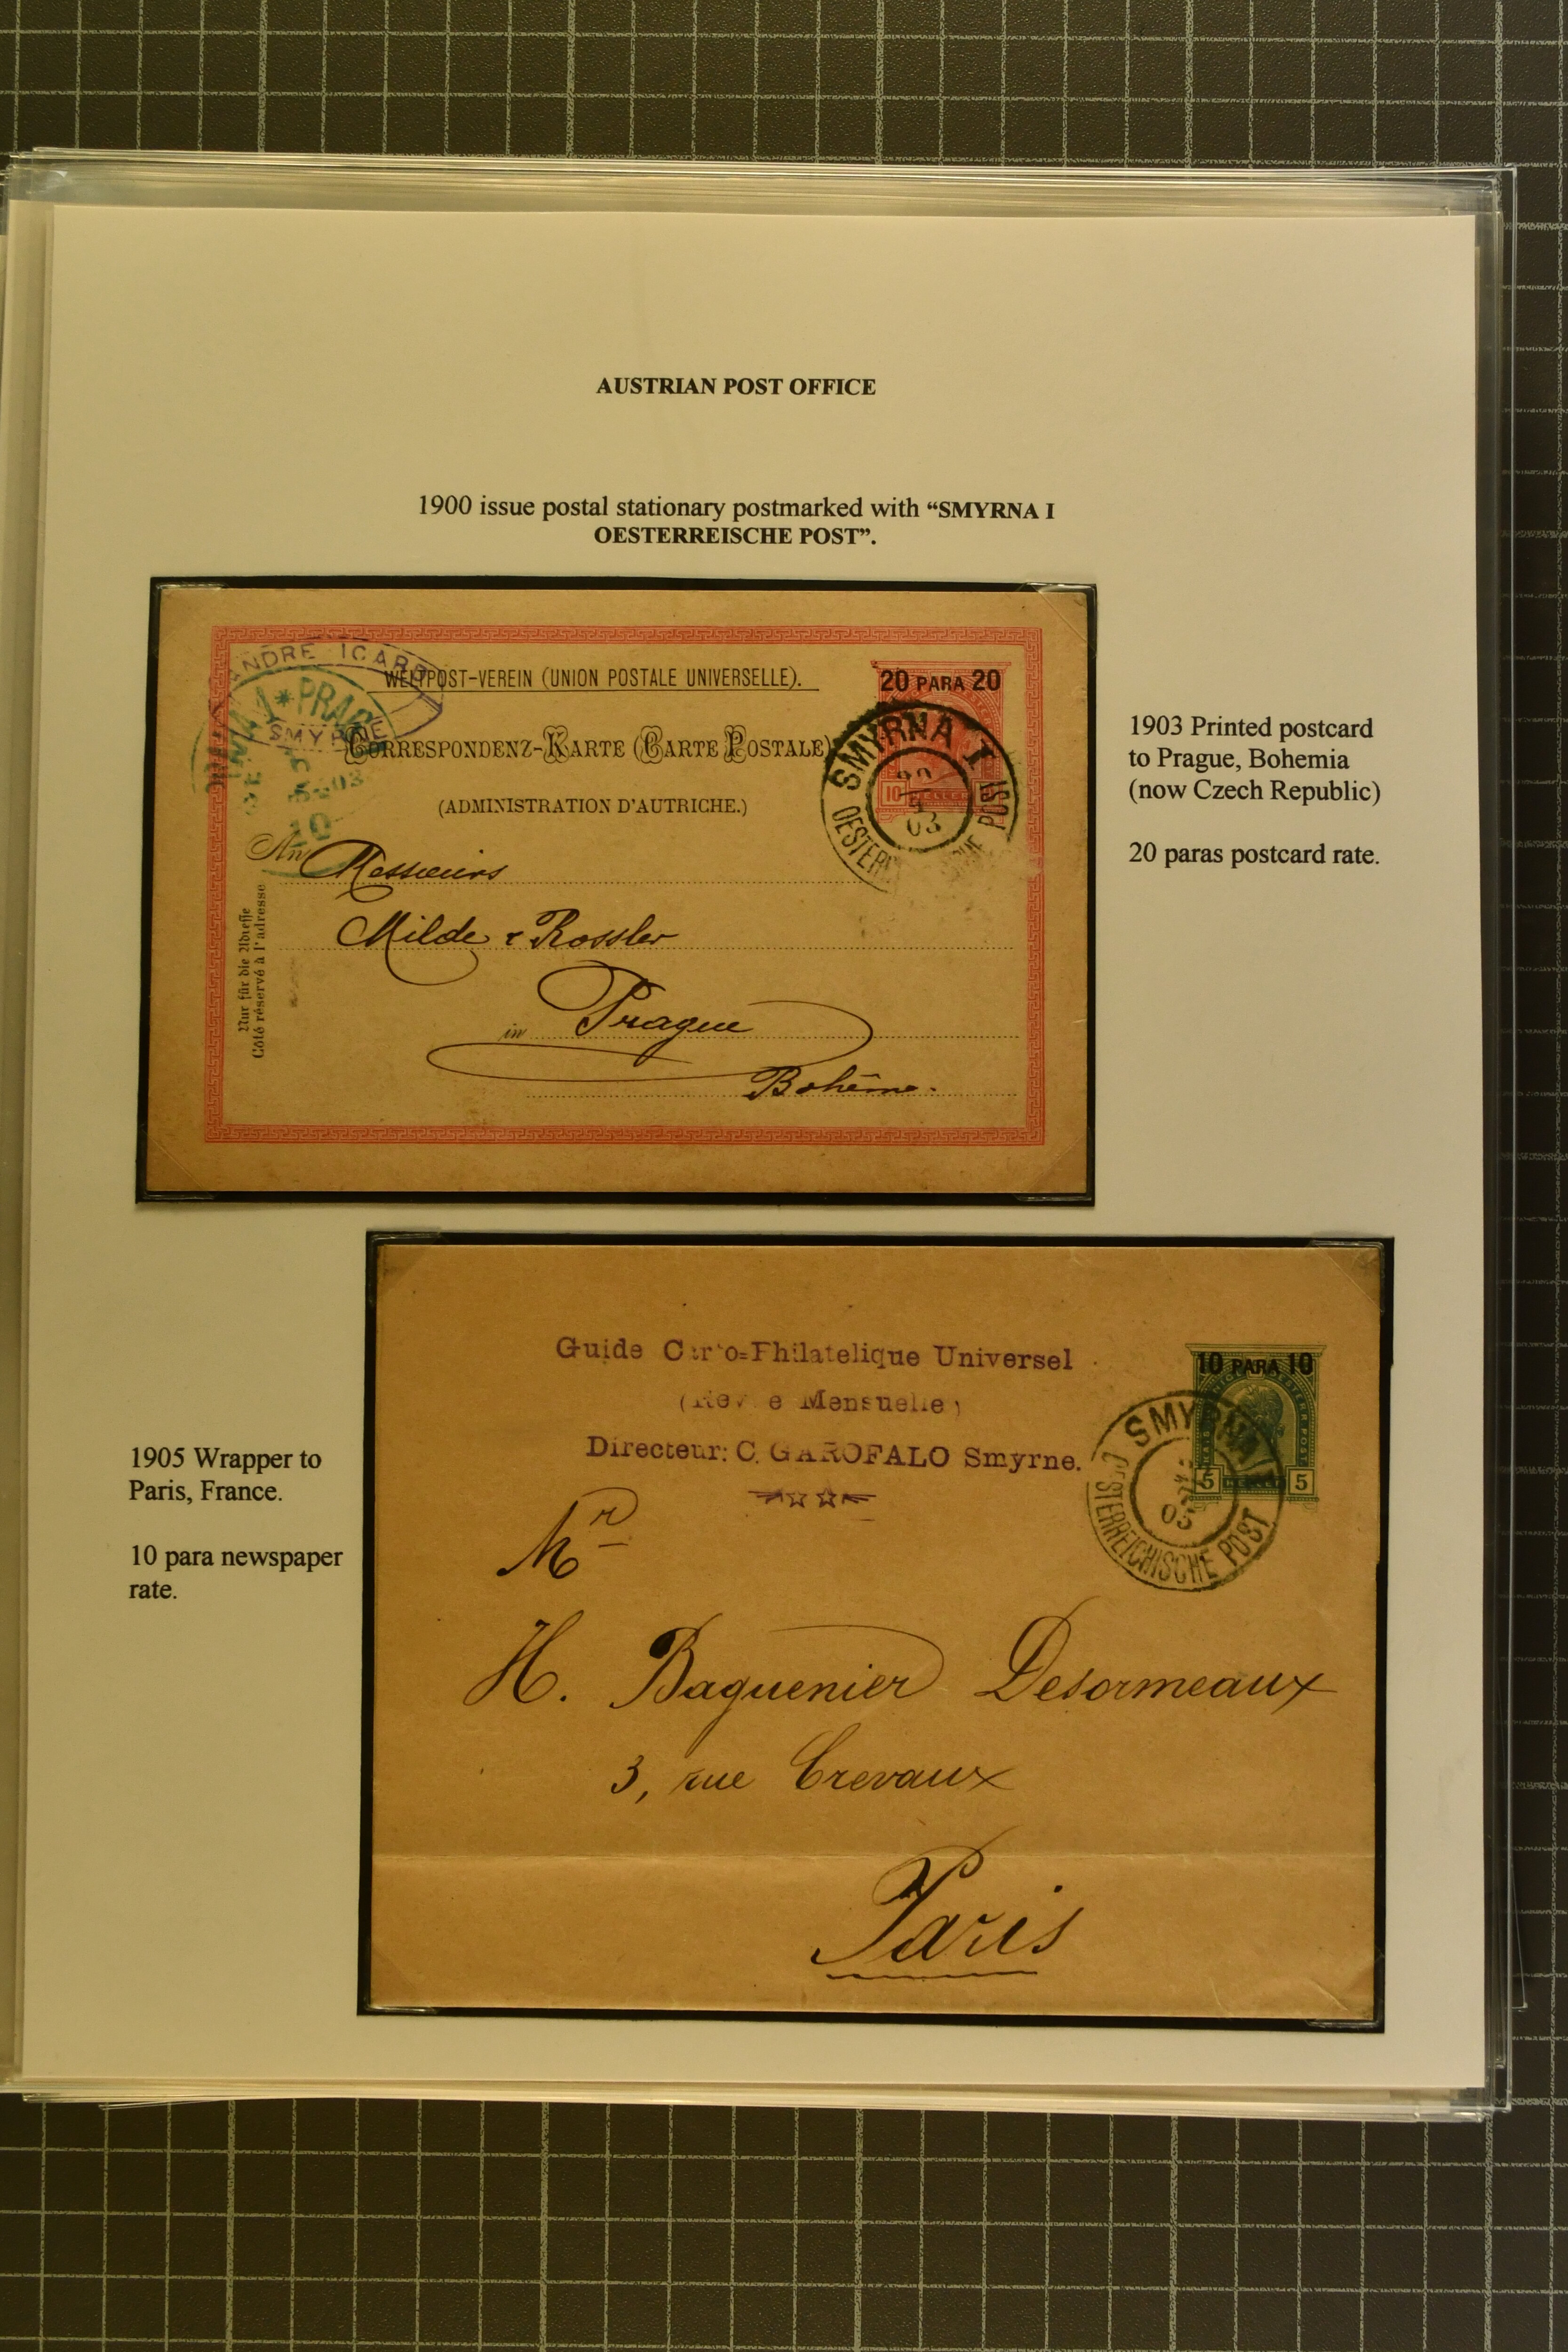 AUSTRIAN POST OFFICE
1900 issue postal stationary postmarked with “SMYRNA I
OESTERREISCHE POST”.
ANDRE ICARD
SMYRNE
PRAG
WELTPOST-VEREIN (UNION POSTALE UNIVERSELLE).
20 PARA 20
CORRESPONDENZ-KARTE (CARTE POSTALE)
(ADMINISTRATION D'AUTRICHE.)
SMYRNA I
10 HELLER
03
POST
An Messieurs
Milde & Rossler
in Prague
Bohême.
Nur für die Adresse
Côté réservé à l'adresse
1903 Printed postcard
to Prague, Bohemia
(now Czech Republic)
20 paras postcard rate.
1905 Wrapper to
Paris, France.
10 para newspaper
rate.
Guide Carto=Philatelique Universel
(Revue Mensuelle)
Directeur: C. GAROFALO Smyrne.
10 PARA 10
5 HELLER 5
SMYRNA I
OESTERREICHISCHE POST
05
Mr
H. Baguenier Desormeaux
3, rue Crevaux
Paris